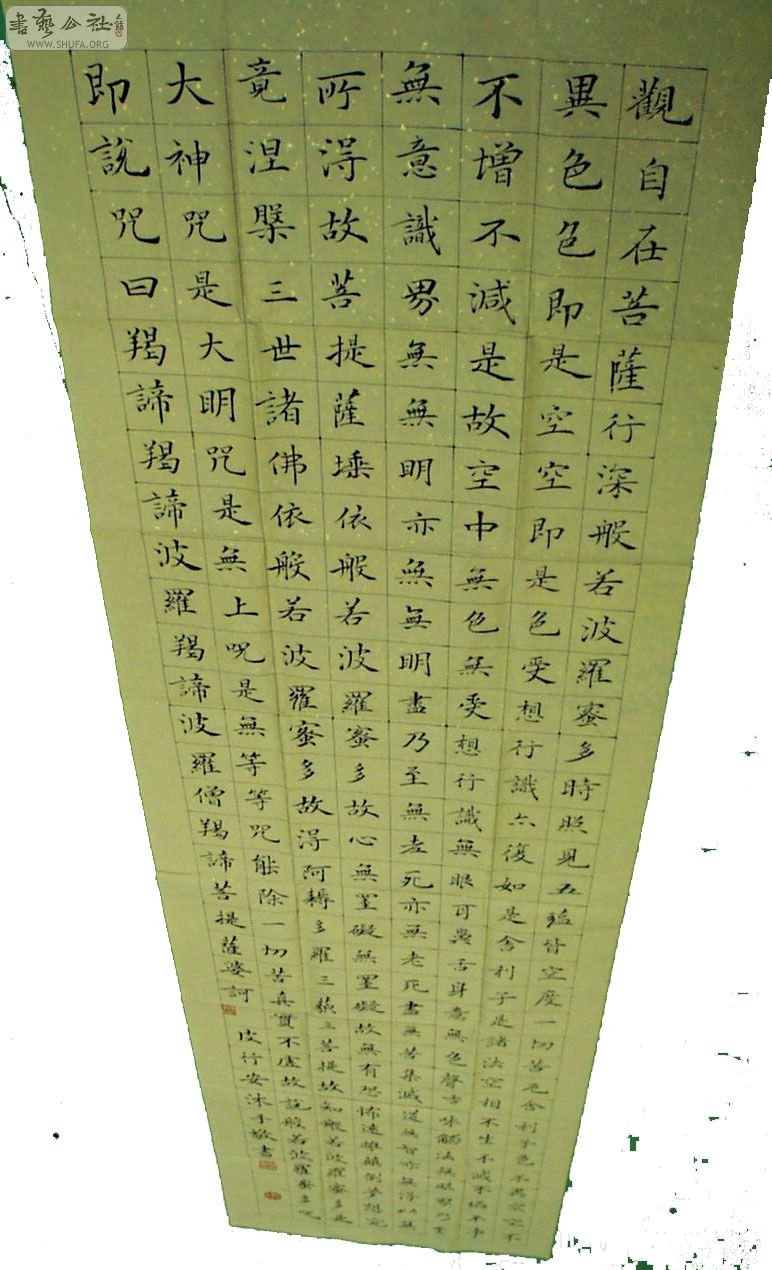 書藝公社
WWW.SHUFA.ORG
觀自在菩薩行深般若波羅蜜多時照見五蘊皆空度一切苦厄舍利子色不異空空不
異色色即是空空即是色受想行識亦復如是舍利子是諸法空相不生不滅不垢不淨
不增不減是故空中無色無受想行識無眼耳鼻舌身意無色聲香味觸法無眼界乃至
無意識界無無明亦無無明盡乃至無老死亦無老死盡無苦集滅道無智亦無得以無
所得故菩提薩埵依般若波羅蜜多故心無罣礙無罣礙故無有恐怖遠離顛倒夢想究
竟涅槃三世諸佛依般若波羅蜜多故得阿耨多羅三藐三菩提故知般若波羅蜜多是
大神咒是大明咒是無上呪是無等等咒能除一切苦真實不虛故說般若波羅蜜多咒
即說咒曰羯諦羯諦波羅羯諦波羅僧羯諦菩提薩婆訶
皮行安沐手敬書